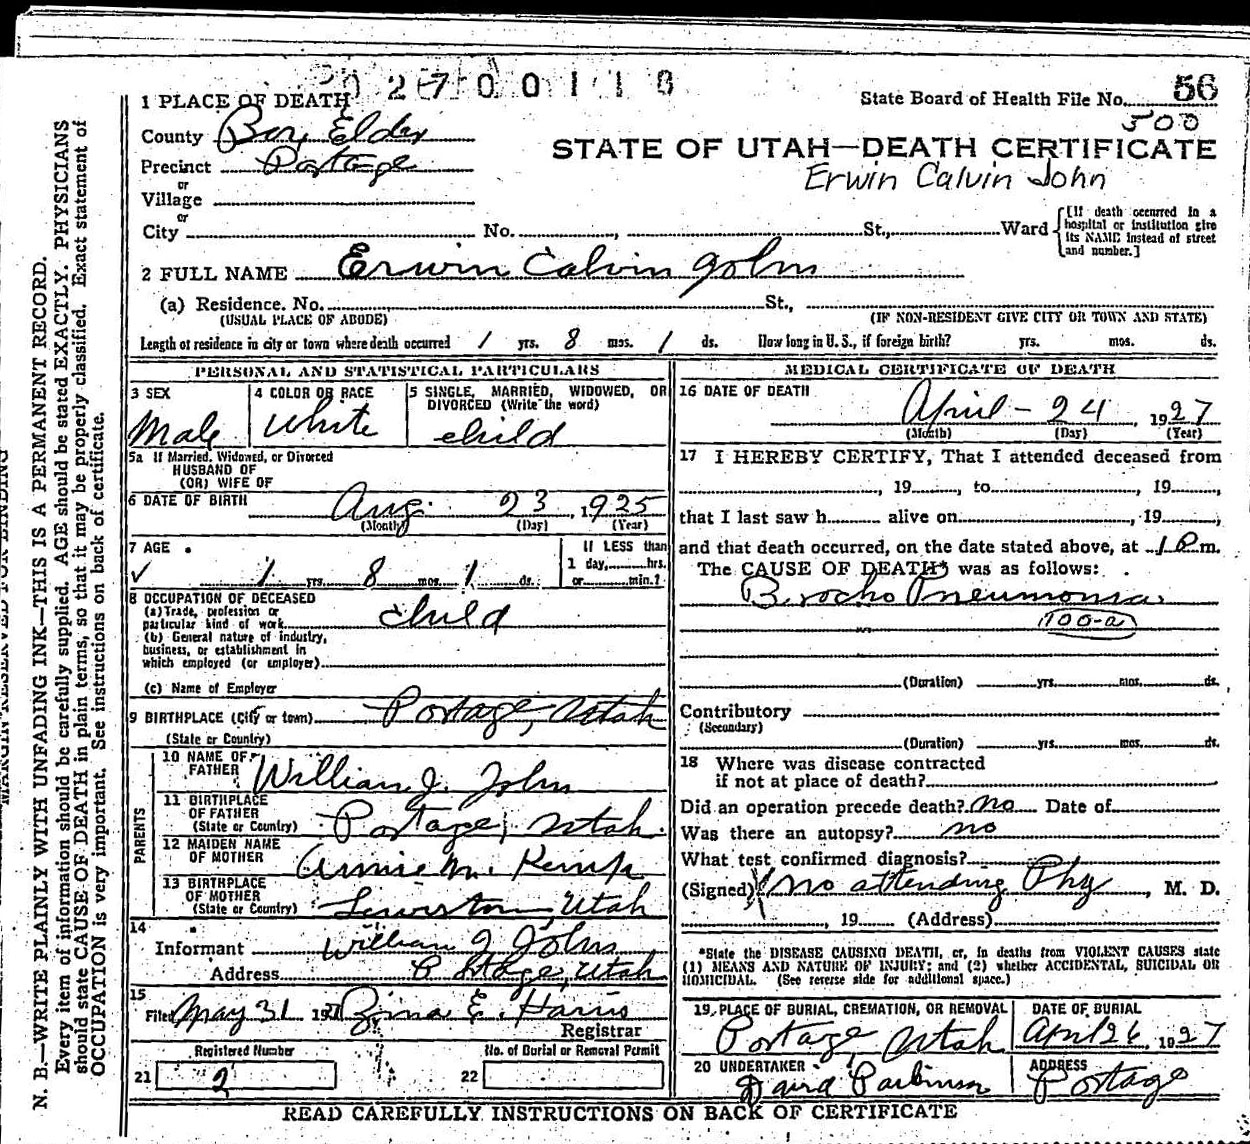 0 2 7 0 0 1 1 8
1 PLACE OF DEATH
State Board of Health File No. 56
500
County Box Elder
STATE OF UTAH—DEATH CERTIFICATE
Precinct Portage
Erwin Calvin John
or
Village
or
City No. , St., Ward
[If death occurred in a hospital or institution give its NAME instead of street and number.]
2 FULL NAME Erwin Calvin John
(a) Residence. No. St.,
(USUAL PLACE OF ABODE) (IF NON-RESIDENT GIVE CITY OR TOWN AND STATE)
Length of residence in city or town where death occurred 1 yrs. 8 mos. 1 ds. How long in U. S., if foreign birth? yrs. mos. ds.
PERSONAL AND STATISTICAL PARTICULARS
3 SEX
Male
4 COLOR OR RACE
White
5 SINGLE, MARRIED, WIDOWED, OR
DIVORCED (Write the word)
child
5a If Married, Widowed, or Divorced
HUSBAND OF
(OR) WIFE OF
6 DATE OF BIRTH Aug. 23, 1925
(Month) (Day) (Year)
7 AGE
✓ 1 yrs. 8 mos. 1 ds.
If LESS than
1 day, hrs.
or min.?
8 OCCUPATION OF DECEASED
(a) Trade, profession or
particular kind of work child
(b) General nature of industry,
business, or establishment in
which employed (or employer)
(c) Name of Employer
9 BIRTHPLACE (City or town) Portage, Utah
(State or Country)
PARENTS
10 NAME OF
FATHER William J. John
11 BIRTHPLACE
OF FATHER
(State or Country) Portage, Utah.
12 MAIDEN NAME
OF MOTHER Annie M. Kemp
13 BIRTHPLACE
OF MOTHER
(State or Country) Lewiston, Utah
14
Informant William J. John
Address Portage, Utah
15
Filed May 31 192 E. Harris
Registrar
Registered Number
21 2
No. of Burial or Removal Permit
22
MEDICAL CERTIFICATE OF DEATH
16 DATE OF DEATH
April - 24, 1927
(Month) (Day) (Year)
17 I HEREBY CERTIFY, That I attended deceased from
, 19 , to , 19 ,
that I last saw h alive on , 19 ,
and that death occurred, on the date stated above, at 1 P m.
The CAUSE OF DEATH* was as follows:
Brocho Pneumonia
100-a
(Duration) yrs. mos. ds.
Contributory
(Secondary)
(Duration) yrs. mos. ds.
18 Where was disease contracted
if not at place of death?
Did an operation precede death? no Date of
Was there an autopsy? no
What test confirmed diagnosis?
(Signed) no attending Phy , M. D.
, 19 (Address)
*State the DISEASE CAUSING DEATH, or, in deaths from VIOLENT CAUSES state
(1) MEANS AND NATURE OF INJURY; and (2) whether ACCIDENTAL, SUICIDAL OR
HOMICIDAL. (See reverse side for additional space.)
19 PLACE OF BURIAL, CREMATION, OR REMOVAL
Portage, Utah
DATE OF BURIAL
April 26, 1927
20 UNDERTAKER
David Parkinson
ADDRESS
Portage
READ CAREFULLY INSTRUCTIONS ON BACK OF CERTIFICATE
MARGIN RESERVED FOR BINDING
N. B.—WRITE PLAINLY WITH UNFADING INK—THIS IS A PERMANENT RECORD.
Every item of information should be carefully supplied. AGE should be stated EXACTLY. PHYSICIANS
should state CAUSE OF DEATH in plain terms, so that it may be properly classified. Exact statement of
OCCUPATION is very important. See instructions on back of certificate.